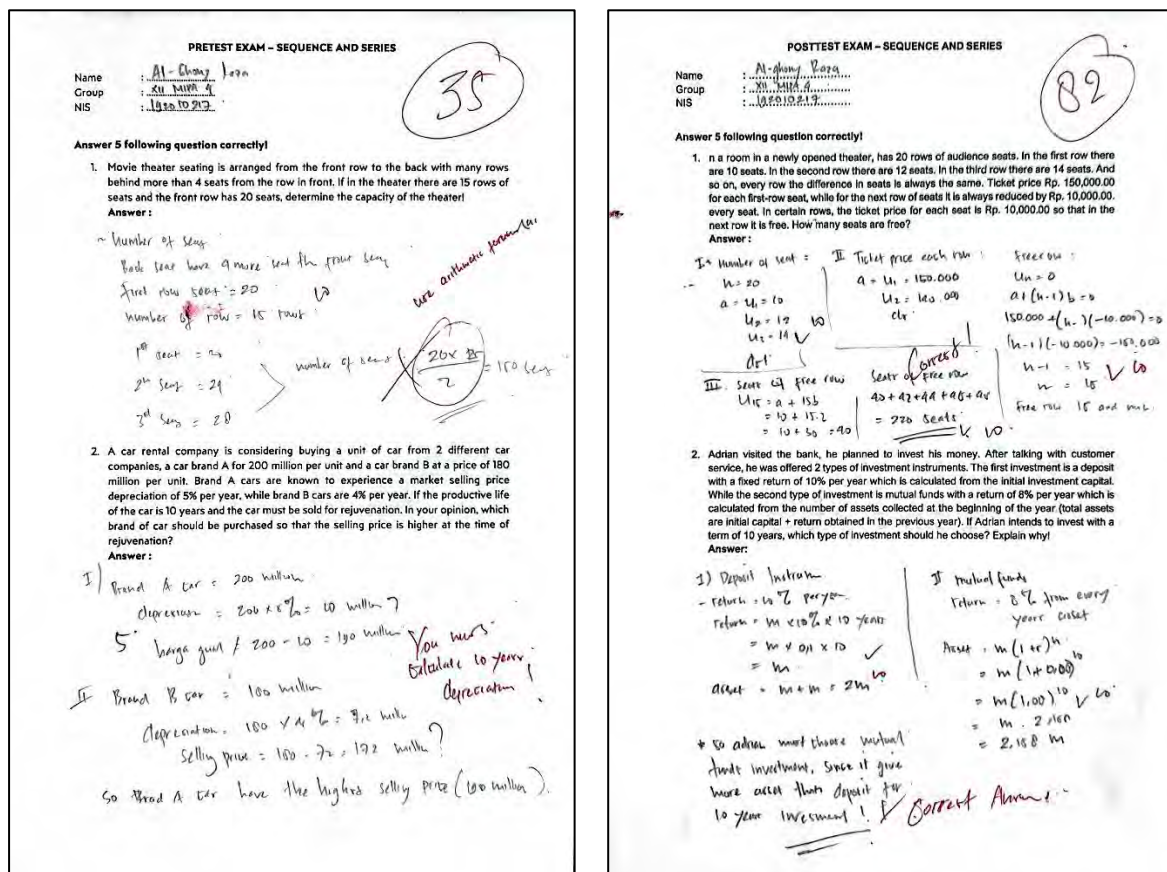 PRETEST EXAM – SEQUENCE AND SERIES
Name : Al-Ghony
Group : XII MIPA 4
NIS : 192010217
35
Answer 5 following question correctly!
1. Movie theater seating is arranged from the front row to the back with many rows
behind more than 4 seats from the row in front. If in the theater there are 15 rows of
seats and the front row has 20 seats, determine the capacity of the theater!
Answer :
~ Number of
Back seat have 4 more seat
first row seat = 20
10
number of row = 15 rows
use arithmetic formula!
1st seat = 20
2nd = 24
3rd = 28
number of
2
= 150
2. A car rental company is considering buying a unit of car from 2 different car
companies, a car brand A for 200 million per unit and a car brand B at a price of 180
million per unit. Brand A cars are known to experience a market selling price
depreciation of 5% per year, while brand B cars are 4% per year. If the productive life
of the car is 10 years and the car must be sold for rejuvenation. In your opinion, which
brand of car should be purchased so that the selling price is higher at the time of
rejuvenation?
Answer :
I) Brand A car = 200 million
depreciation = 200 x 5% = 10 million ?
5
200 - 10 = 190 million
You must
calculate 10 years
depreciation !
II Brand B car = 180 million
depreciation = 180 x 4% = 7,2
selling price = 180 - 72 = 172 ?
So Brand A car have the highest selling price
POSTTEST EXAM – SEQUENCE AND SERIES
Name : Al-ghony Raza
Group : XII MIPA 4
NIS : 192010217
82
Answer 5 following question correctly!
1. n a room in a newly opened theater, has 20 rows of audience seats. In the first row there
are 10 seats. In the second row there are 12 seats. In the third row there are 14 seats. And
so on, every row the difference in seats is always the same. Ticket price Rp. 150,000.00
for each first-row seat, while for the next row of seats it is always reduced by Rp. 10,000.00.
every seat. In certain rows, the ticket price for each seat is Rp. 10,000.00 so that in the
next row it is free. How many seats are free?
Answer :
Number of seat :
n = 20
a = U1 = 10
U2 = 12
10
= 14
II Ticket price each row :
a = U1 = 150.000
U2 =
Free row :
Un = 0
a + (n-1) b = 0
150.000 + (n-1)(-10.000) = 0
(n-1)(-10.000) = -150.000
n-1 = 15
10
Free row
Correct !
III. Seat of free row
U15 = a + 15b
= 10 + 15.2
= 10 + 30 = 40
Seats of free row
40 + 42 + 44 + 46 + 48
= 220 seats
10
2. Adrian visited the bank, he planned to invest his money. After talking with customer
service, he was offered 2 types of investment instruments. The first investment is a deposit
with a fixed return of 10% per year which is calculated from the initial investment capital.
While the second type of investment is mutual funds with a return of 8% per year which is
calculated from the number of assets collected at the beginning of the year (total assets
are initial capital + return obtained in the previous year). If Adrian intends to invest with a
term of 10 years, which type of investment should he choose? Explain why!
Answer:
1) Deposit Instrum
- return = 10% per year
return = m x 10% x 10 years
= m x 0,1 x 10
= m
10
asset = m + m = 2m
II mutual funds
return = 8% from every
years asset
Asset = m (1+r)^n
10
= 2,158 m
* So adrian must choose mutual
funds investment, since it give
more asset than deposit for
10 year investment !
Correct Answer